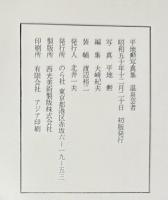 平地勲写真集 温泉芸者
昭和五十年十二月二十日 初版発行
写真 平地 勲
編集 大崎紀夫
装幀 渡辺裕二
発行人 北井一夫
発行所 のら社 東京都港区赤坂六-一九-五三
製版所 西光美術製版株式会社
印刷所 有限会社 アジア印刷